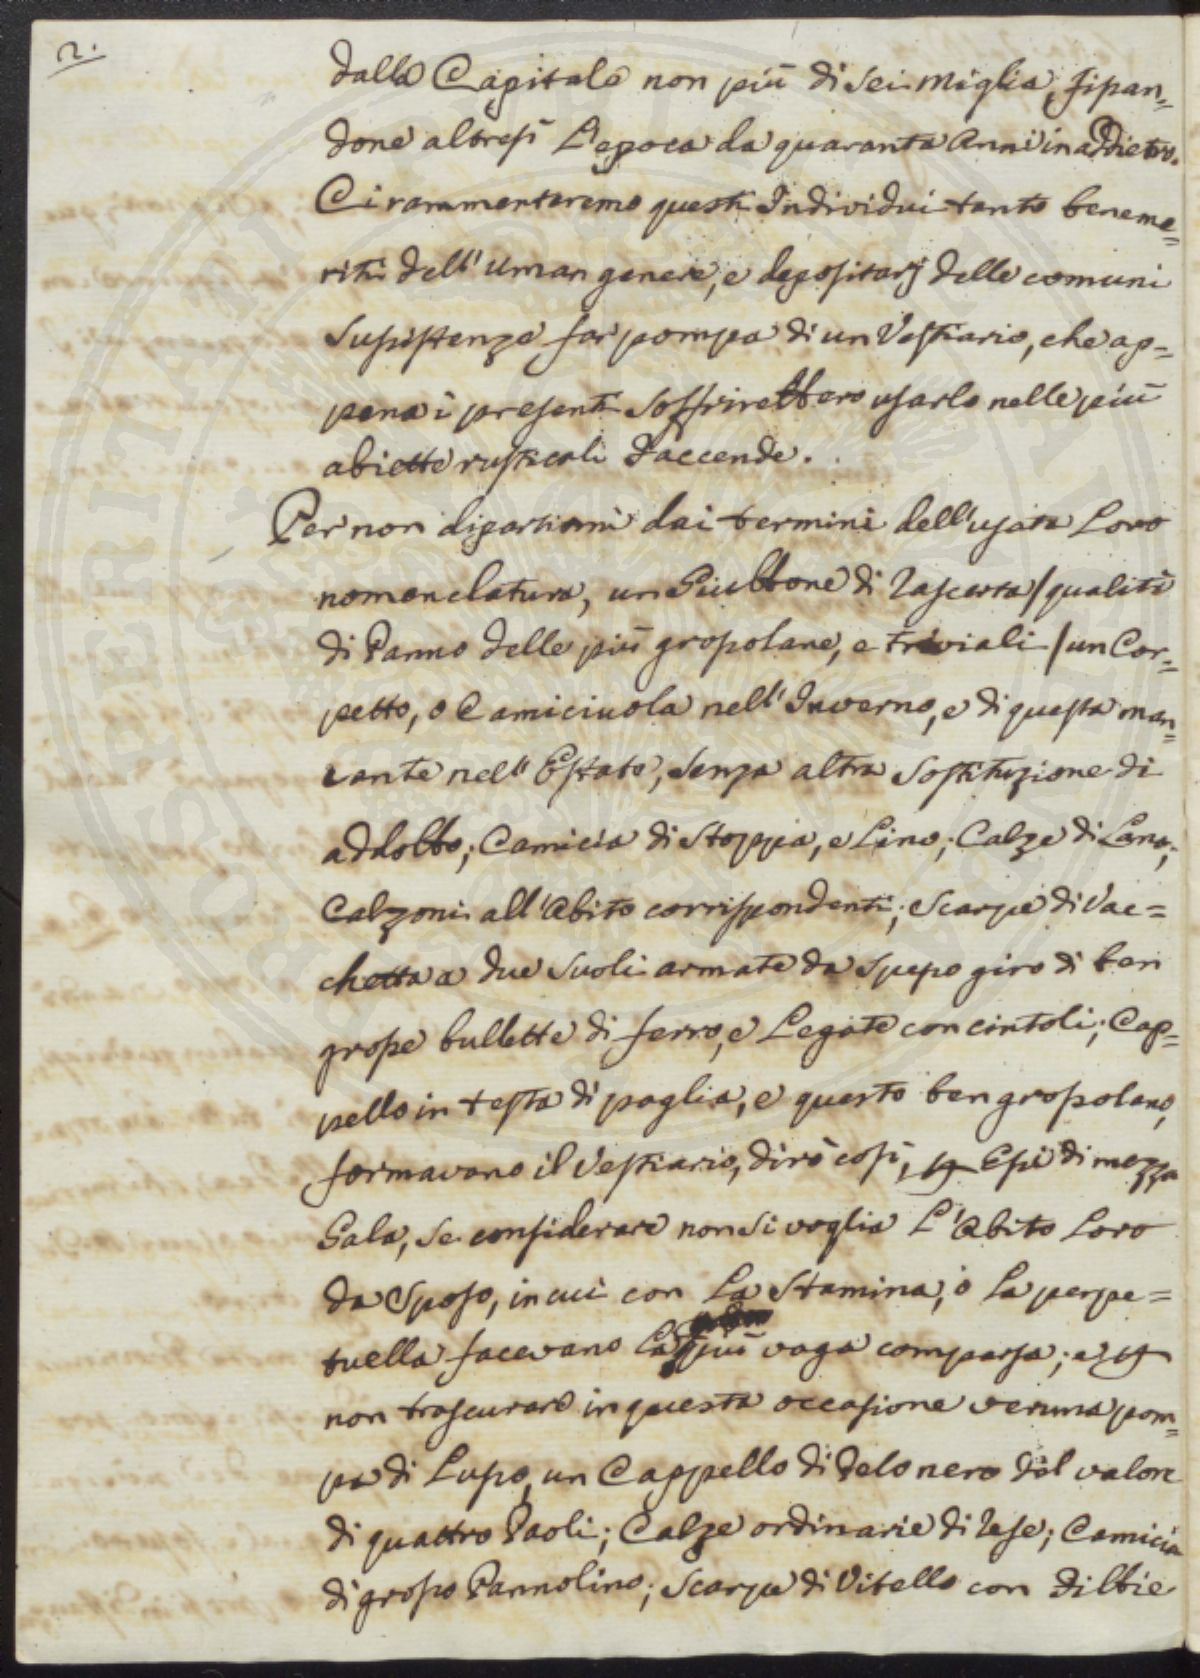 2.
dalla Capitale non più di sei miglia, fissan=
done altresì L'epoca da quaranta Anni in addietro.
Ci rammenteremo questi Individui tanto beneme=
riti dell'uman genere, e depositarj delle comuni
Sussistenze far pompa di un Vestiario, che ap=
pena i presenti soffrirebbero usarlo nelle più
abiette rusticali faccende.
Per non dipartirmi dai termini dell'usata Loro
nomenclatura, un Giubbone di Rascetta / qualità
di Panno delle più grossolane, e triviali / un Cor=
petto, o Camiciuola nell'Inverno, e di questa man=
cante nell'Estate, senza altra sostituzione di
addobbo; Camicia di Stoppa, e Lino; Calze di Lana;
Calzoni all'Abito corrispondenti; Scarpe di Vac=
chetta a due Suoli armate da spesso giro di ben
grosse bullette di ferro, e Legate con cintoli; Cap=
pello in testa di paglia, e questo ben grossolano,
formavano il Vestiario, dirò così, per Essi di mezza
Gala, se considerare non si voglia L'Abito Loro
da Sposo, in cui con La Stamina, o La perpe=
tuella facevano La più vaga comparsa; e per
non trascurare in questa occasione veruna pom=
pa di Lusso, un Cappello di Pelo nero del valore
di quattro Paoli; Calze ordinarie di Refe; Camicia
di grosso Pannolino; Scarpe di Vitello con Fibbie
PROSPERITATI PUBLICAE